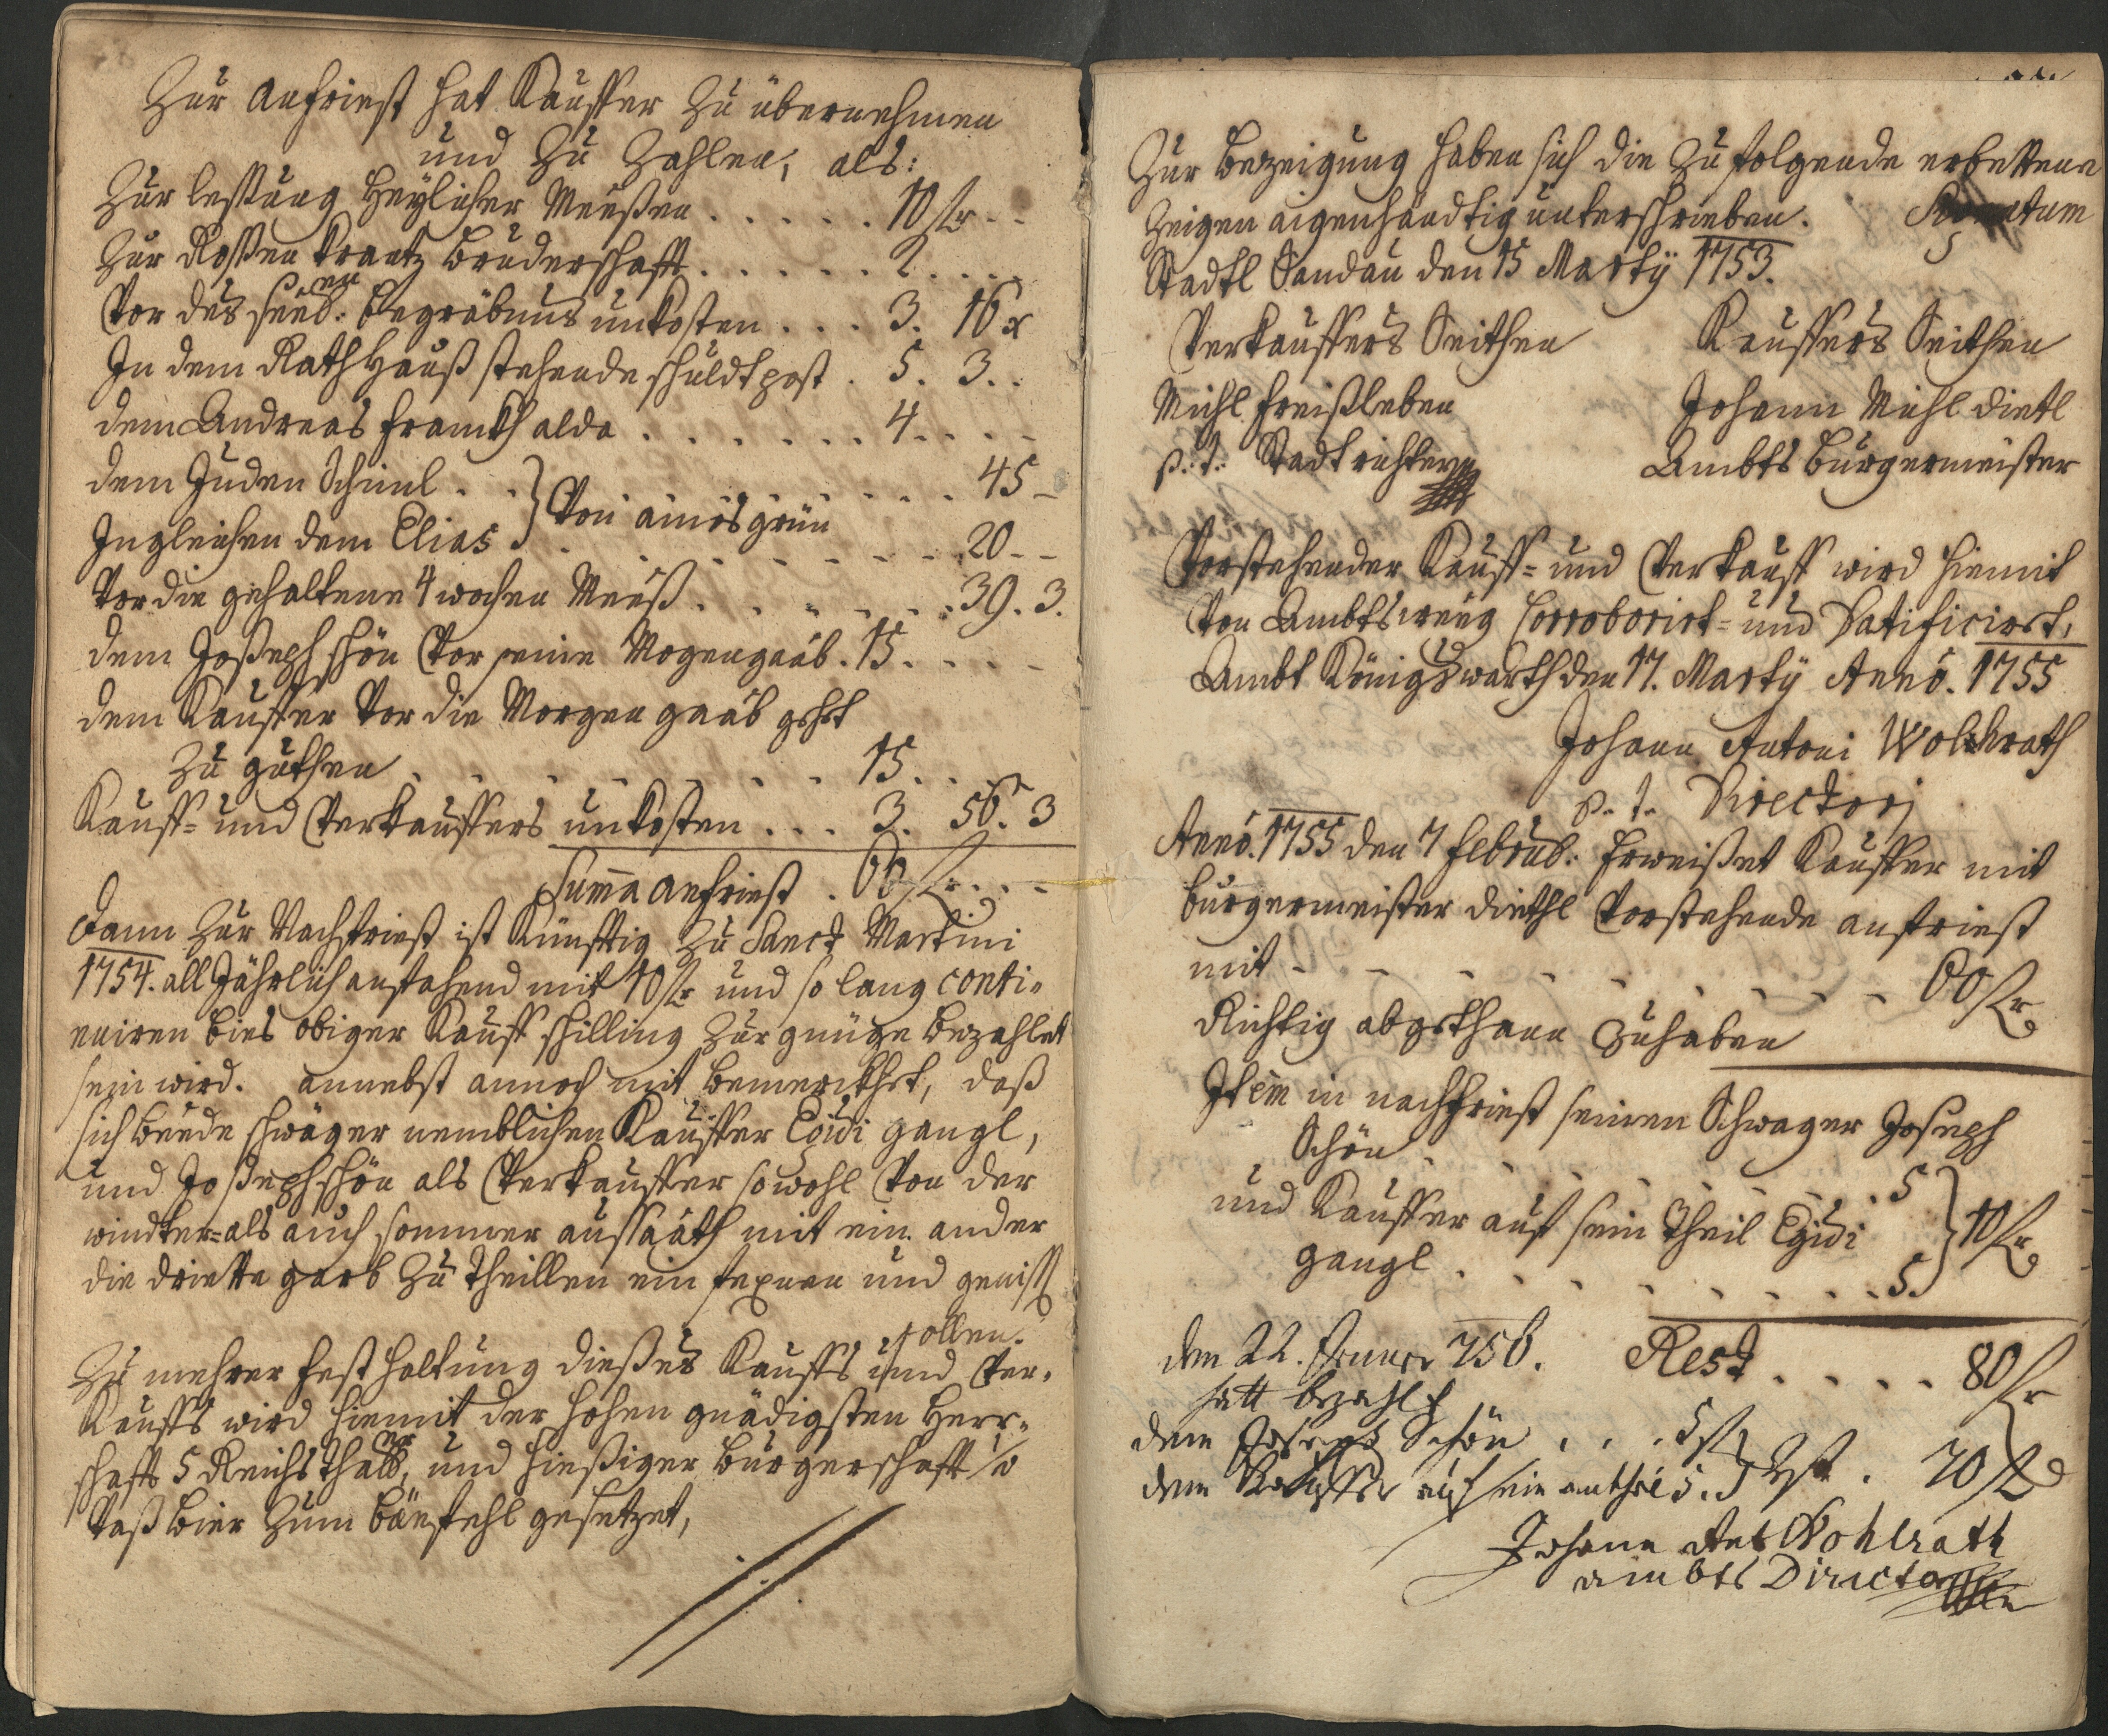 Zur anfriest hat Kauffer zu übernehmen
und zu zahlen, als:
Zur lesung heyliger Meeßen . . . . . 10 fr . .
Zur Roßen krantz Bruderschafft . . . . . . 2 . . . .
Vor des seel: Begräbnus unkosten . . . 3. 16 x
en
In dem Rathhauß stehende schuldtpost . 5. 3. .
dem Andreas Franckh alda . . . . . . . 4 . . . .
dem Juden Schiml . . } . . . . . . 45 –
Von amesgrün
Ingleichen dem Elias . . . . . . . . 20 – –
Vor die gehaltene 4 wochen Meeß . . . . . . . 39. 3.
dem Joßeph schön Vor seine Mogengaab . 15 . . . .
dem Kauffer Vor die Morgen gaab geht
zu guthen . . . . . . . . 15 . . .
Kauff- und Verkauffers unkosten . . . 3. 56. 3
Summa anfriest . 60 fr . . . –
dann zur Nachfriest ist künfftig zu Sanct Martini
1754. all Jährlich anstehend mit 10 fr und so lang conti-
nuiren bies obiger Kauff schilling zur gnüge bezahlet
sein wird. annebst annoch mit bemerckhet, daß
sich beede schwäger nemblichen Kauffer Egidi gangl,
und Joßeph schön als Verkauffer sowohl Von der
windter- als auch sommer außsaath mit ein ander
die driette garb zu theillen ein fexnen und genissen
sollen.
Zu mehrer festhaltung dießes Kauffs und Ver-
kauffs wird hiemit der hohen gnädigsten Herr-
schafft 5 Reichsthall, und hießiger Burgerschafft 1/2
Vaß bier zum bäenfehl gesetzet,
Zur bezeigung haben sich die zu folgende erbettene
zeigen aigenhändtig unterschrieben.
Stadtl Sandau den 15 Martÿ 1753.
Verkauffers Seithen Kauffers Seithen
Michl Freißleben Johann Michl dietl
p. t. Stadtrichter Ambts Burgermeister
Vorstehender Kauff- und Verkauff wird hiemit
Von Ambtsweeg Corroborirt- und Ratificiert,
Ambt Königswarth den 17. Martÿ Anno. 1755
Johann Antoni Wolckrath
p. t. Directori
Anno. 1755 den 7 februb: Erweißet Kauffer mit
burgermeister diethl Vorstehende anfriest
mit – – – – – – – – 60 fr
Richtig abgethann zuhaben
Item in nachfriest seinen Schwager Joseph
Schön . . . . . . . . 5
und Kauffer auf sein Theil Egidi } 10 fr
gangl . . . . . . . . 5.
den 22. Jenner 756. Rest . . . . 80 fr
hatt bezahlt
dem Joseph Schön . . . 5 f
dem Kauffer auf sein antheil 5. } Rst . 70 f
Johann Ant Wohlrath
ambts Director